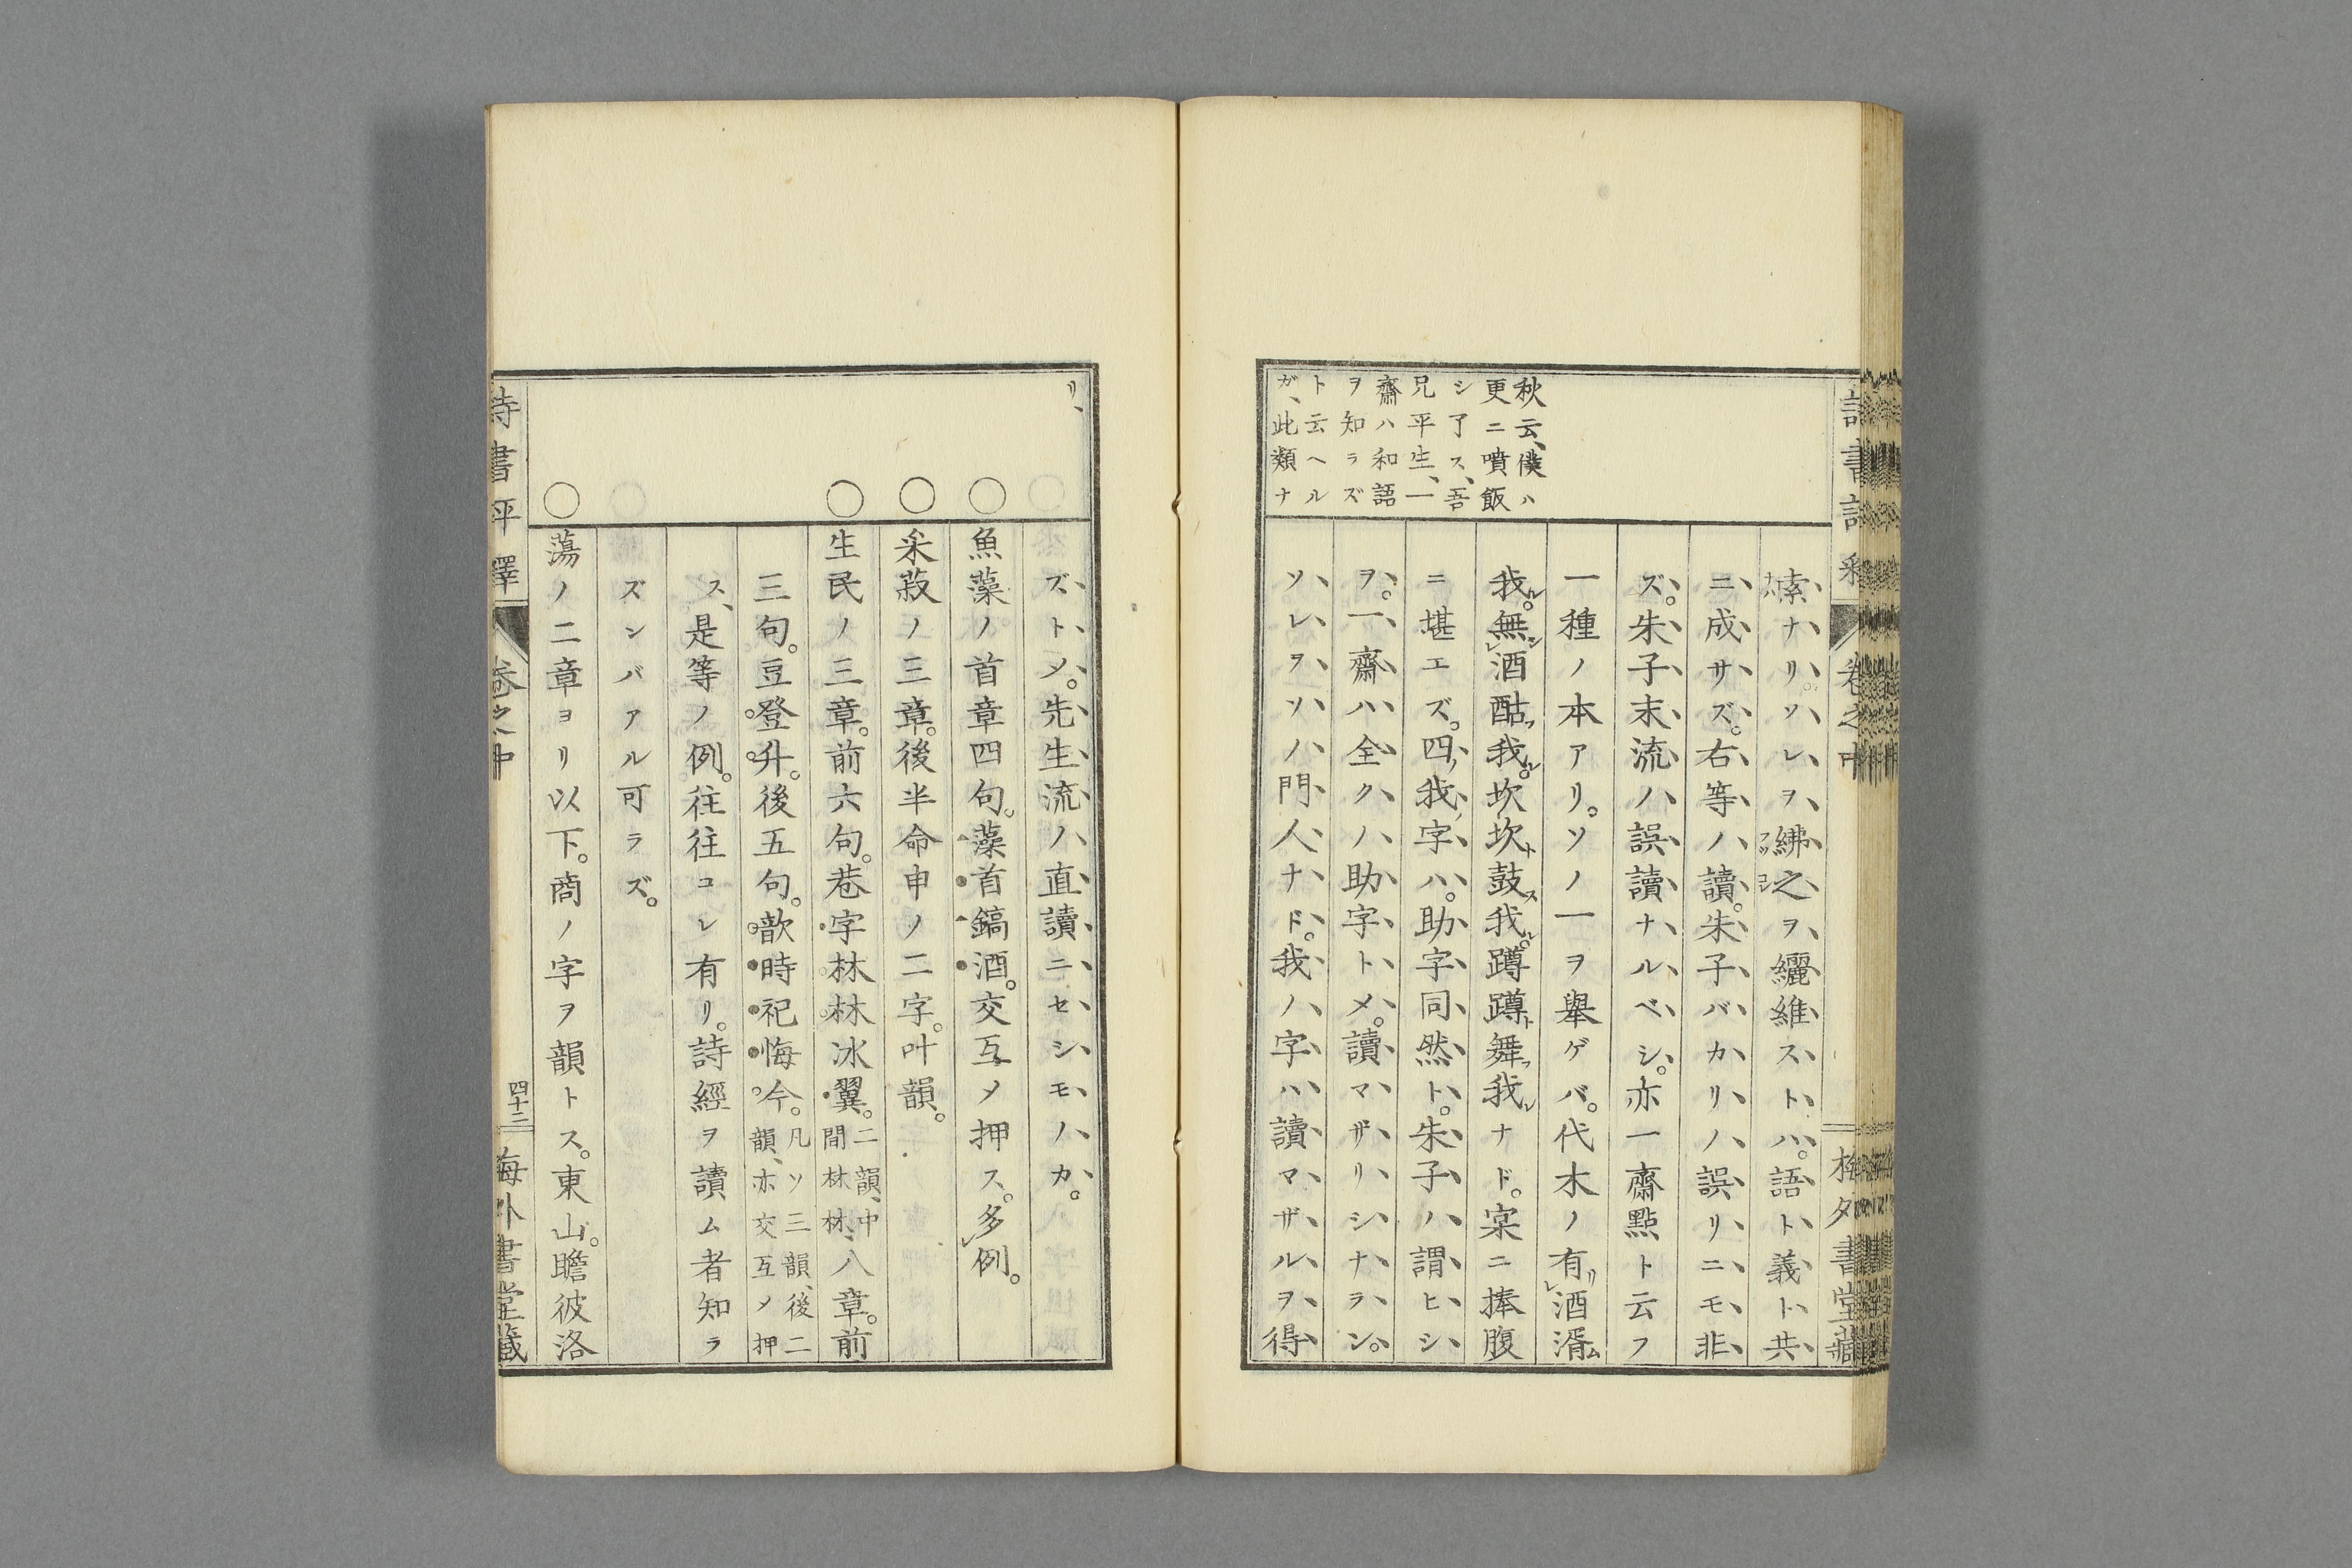 秋云、僕ハ
更ニ噴飯
シ了ス、吾
兄平生、一
齋ハ和語
ヲ知ラズ
ト云ヘル
ガ、此類ナ
索ナリ。ソレヲ紼之ヲ纚維ストハ。語ト義ト共
ニ成サズ。右等ノ讀。朱子バカリノ誤リニモ非
ズ。朱子末流ノ誤讀ナルベシ。亦一齋點ト云フ
一種ノ本アリ。ソノ一ヲ舉ゲバ。代木ノ有レリ酒湑ム
我ル。無レシ酒酤フ我ル。坎坎ト鼓ス我ル。蹲蹲ト舞フ我レナド。寀ニ捧腹
ニ堪エズ。四ノ我ノ字ハ。助字同然ト。朱子ノ謂ヒシ
ヲ。一齋ハ全クノ助字トメ。讀マザリシナラン。
ソレヲソノ門人ナド。我ノ字ハ讀マザルヲ得
リ、
ズトメ。先生流ノ直讀ニセシモノカ。
魚藻ノ首章四句。藻首鎬酒。交互メ押ス。多例。
采菽ノ三章。後半命申ノ二字。叶韻。
生民ノ三章。前六句。巷字林林冰翼。二韻、中間林林、八章。前
三句。豆登升。後五句。歆時祀悔今。凡ソ三韻、後二韻、亦交互メ押
ス、是等ノ例。往往コレ有リ。詩經ヲ讀ム者知ラ
ズンバアル可ラズ。
蕩ノ二章ヨリ以下。商ノ字ヲ韻トス。東山。瞻彼洛
詩書評釋 卷之中 四十二 海外書堂藏